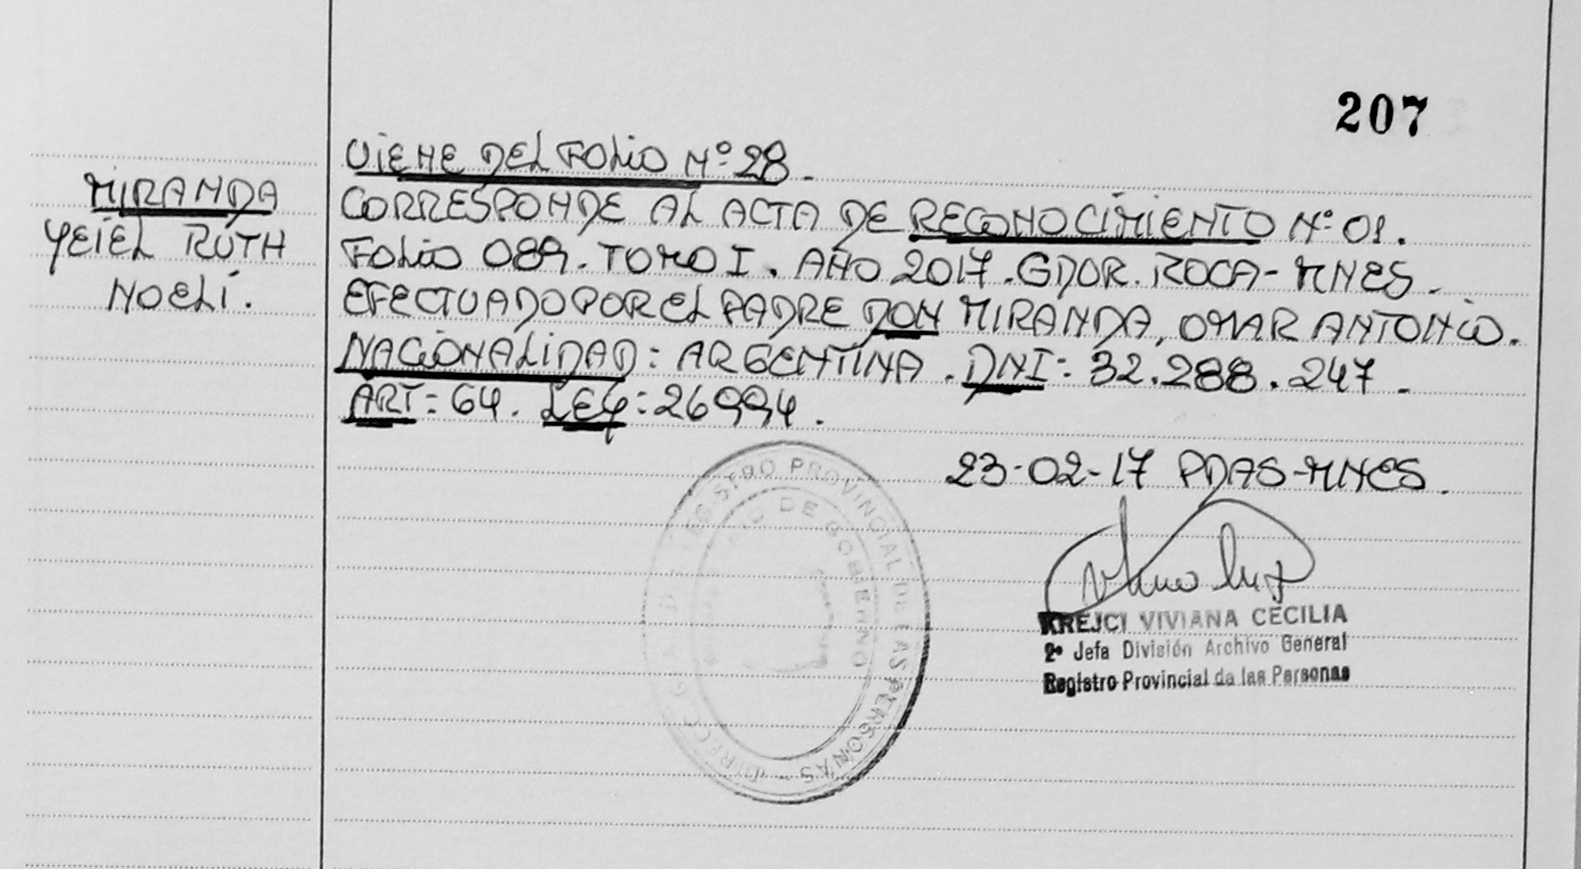 207
VIENE DEL FOLIO Nº 28.
MIRANDA
YEIEL RUTH
NOELÍ.
CORRESPONDE AL ACTA DE RECONOCIMIENTO Nº 01.
FOLIO 089. TOMO I. AÑO 2017. GDOR. ROCA-MNES.
EFECTUADO POR EL PADRE DON MIRANDA, OMAR ANTONIO.
NACIONALIDAD: ARGENTINA. DNI: 32.288.247.
ART: 64. LEY: 26994.
23-02-17 PDAS-MNES.
REGISTRO PROVINCIAL DE LAS PERSONAS
DE GOBIERNO
KREJCI VIVIANA CECILIA
2º Jefa División Archivo General
Registro Provincial de las Personas